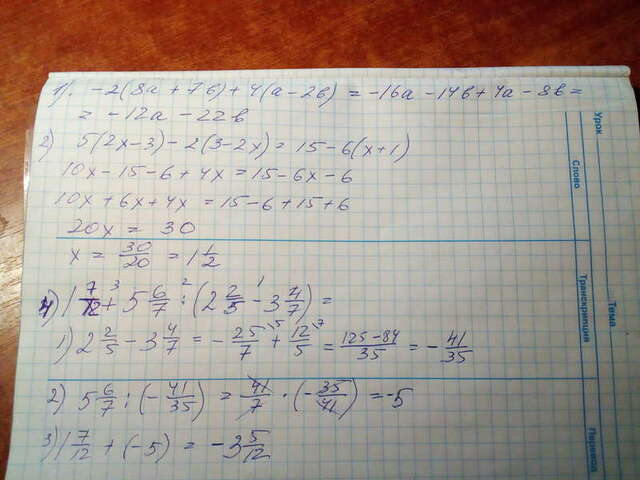 1). -2(8a + 7b) + 4(a - 2b) = -16a - 14b + 4a - 8b =
= -12a - 22b
2) 5(2x-3) - 2(3-2x) = 15 - 6(x+1)
10x - 15 - 6 + 4x = 15 - 6x - 6
10x + 6x + 4x = 15 - 6 + 15 + 6
20x = 30
x = 30/20 = 1 1/2
4) 1 7/12 + 5 6/7 : (2 2/5 - 3 4/7) =
1) 2 2/5 - 3 4/7 = - 25/7 + 12/5 = 125-84/35 = - 41/35
2) 5 6/7 : (- 41/35) = 41/7 · (- 35/41) = -5
3) 1 7/12 + (-5) = -3 5/12
Урок
Тема
Слово
Транскрипция
Перевод